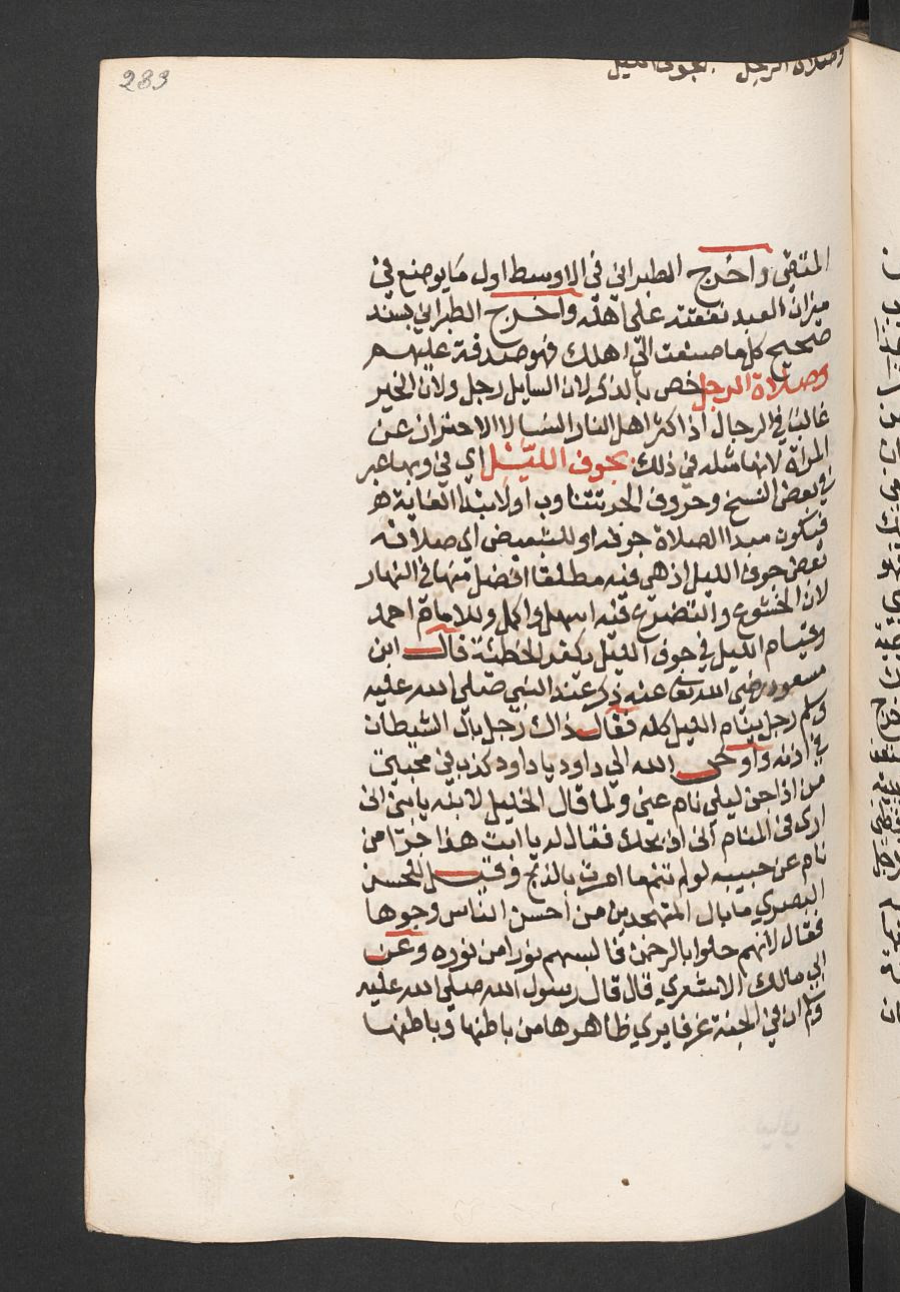 233
وصلاة الرجل بجوف الليل
المتقي واخرج الطبراني في الاوسط اول ما يوضع في
ميزان العبد نفقته على اهله واخرج الطبراني بسند
صحيح كل ما صنعت الى اهلك فهو صدقة عليهم
وصلاة الرجل خص بالذكر لان السايل رجل ولان الخير
غالب في الرجال اذ اكثر اهل النار النسا لا الاحتراز عن
المراة لانها مثله في ذلك بجوف الليل اي في وبها عبر
في بعض النسخ وحروف الجر تتناوب او لابتدا الغاية
فيكون مبدا الصلاة جوفه او للتبعيض اي صلاته
بعض جوف الليل اذ هي فيه مطلقا افضل منها في النهار
لان الخشوع والتضرع فيه اسهل واكمل وللامام احمد
وقيام الليل في جوف الليل يكفر الخطيئة قال ابن
مسعود رضي الله تعالى عنه ذكر عند النبي صلى الله عليه
وسلم رجل ينام الليل كله فقال ذاك رجل بال الشيطان
في اذنه واوحى الله الى داود يا داود كذب في محبتي
من اذا جن ليلي نام عني ولما قال الخليل لابنه يا بني اني
ارى في المنام اني اذبحك فقال له يا ابت هذا جزا من
نام عن حبيبه لو لم تنم ما امرت بالذبح وقيل للحسن
البصري ما بال المتهجدين من احسن الناس وجوها
فقال لانهم خلوا بالرحمن فالبسهم نورا من نوره وعن
ابي مالك الاشعري قال قال رسول الله صلى الله عليه
وسلم ان في الجنة غرفا يرى ظاهرها من باطنها وباطنها